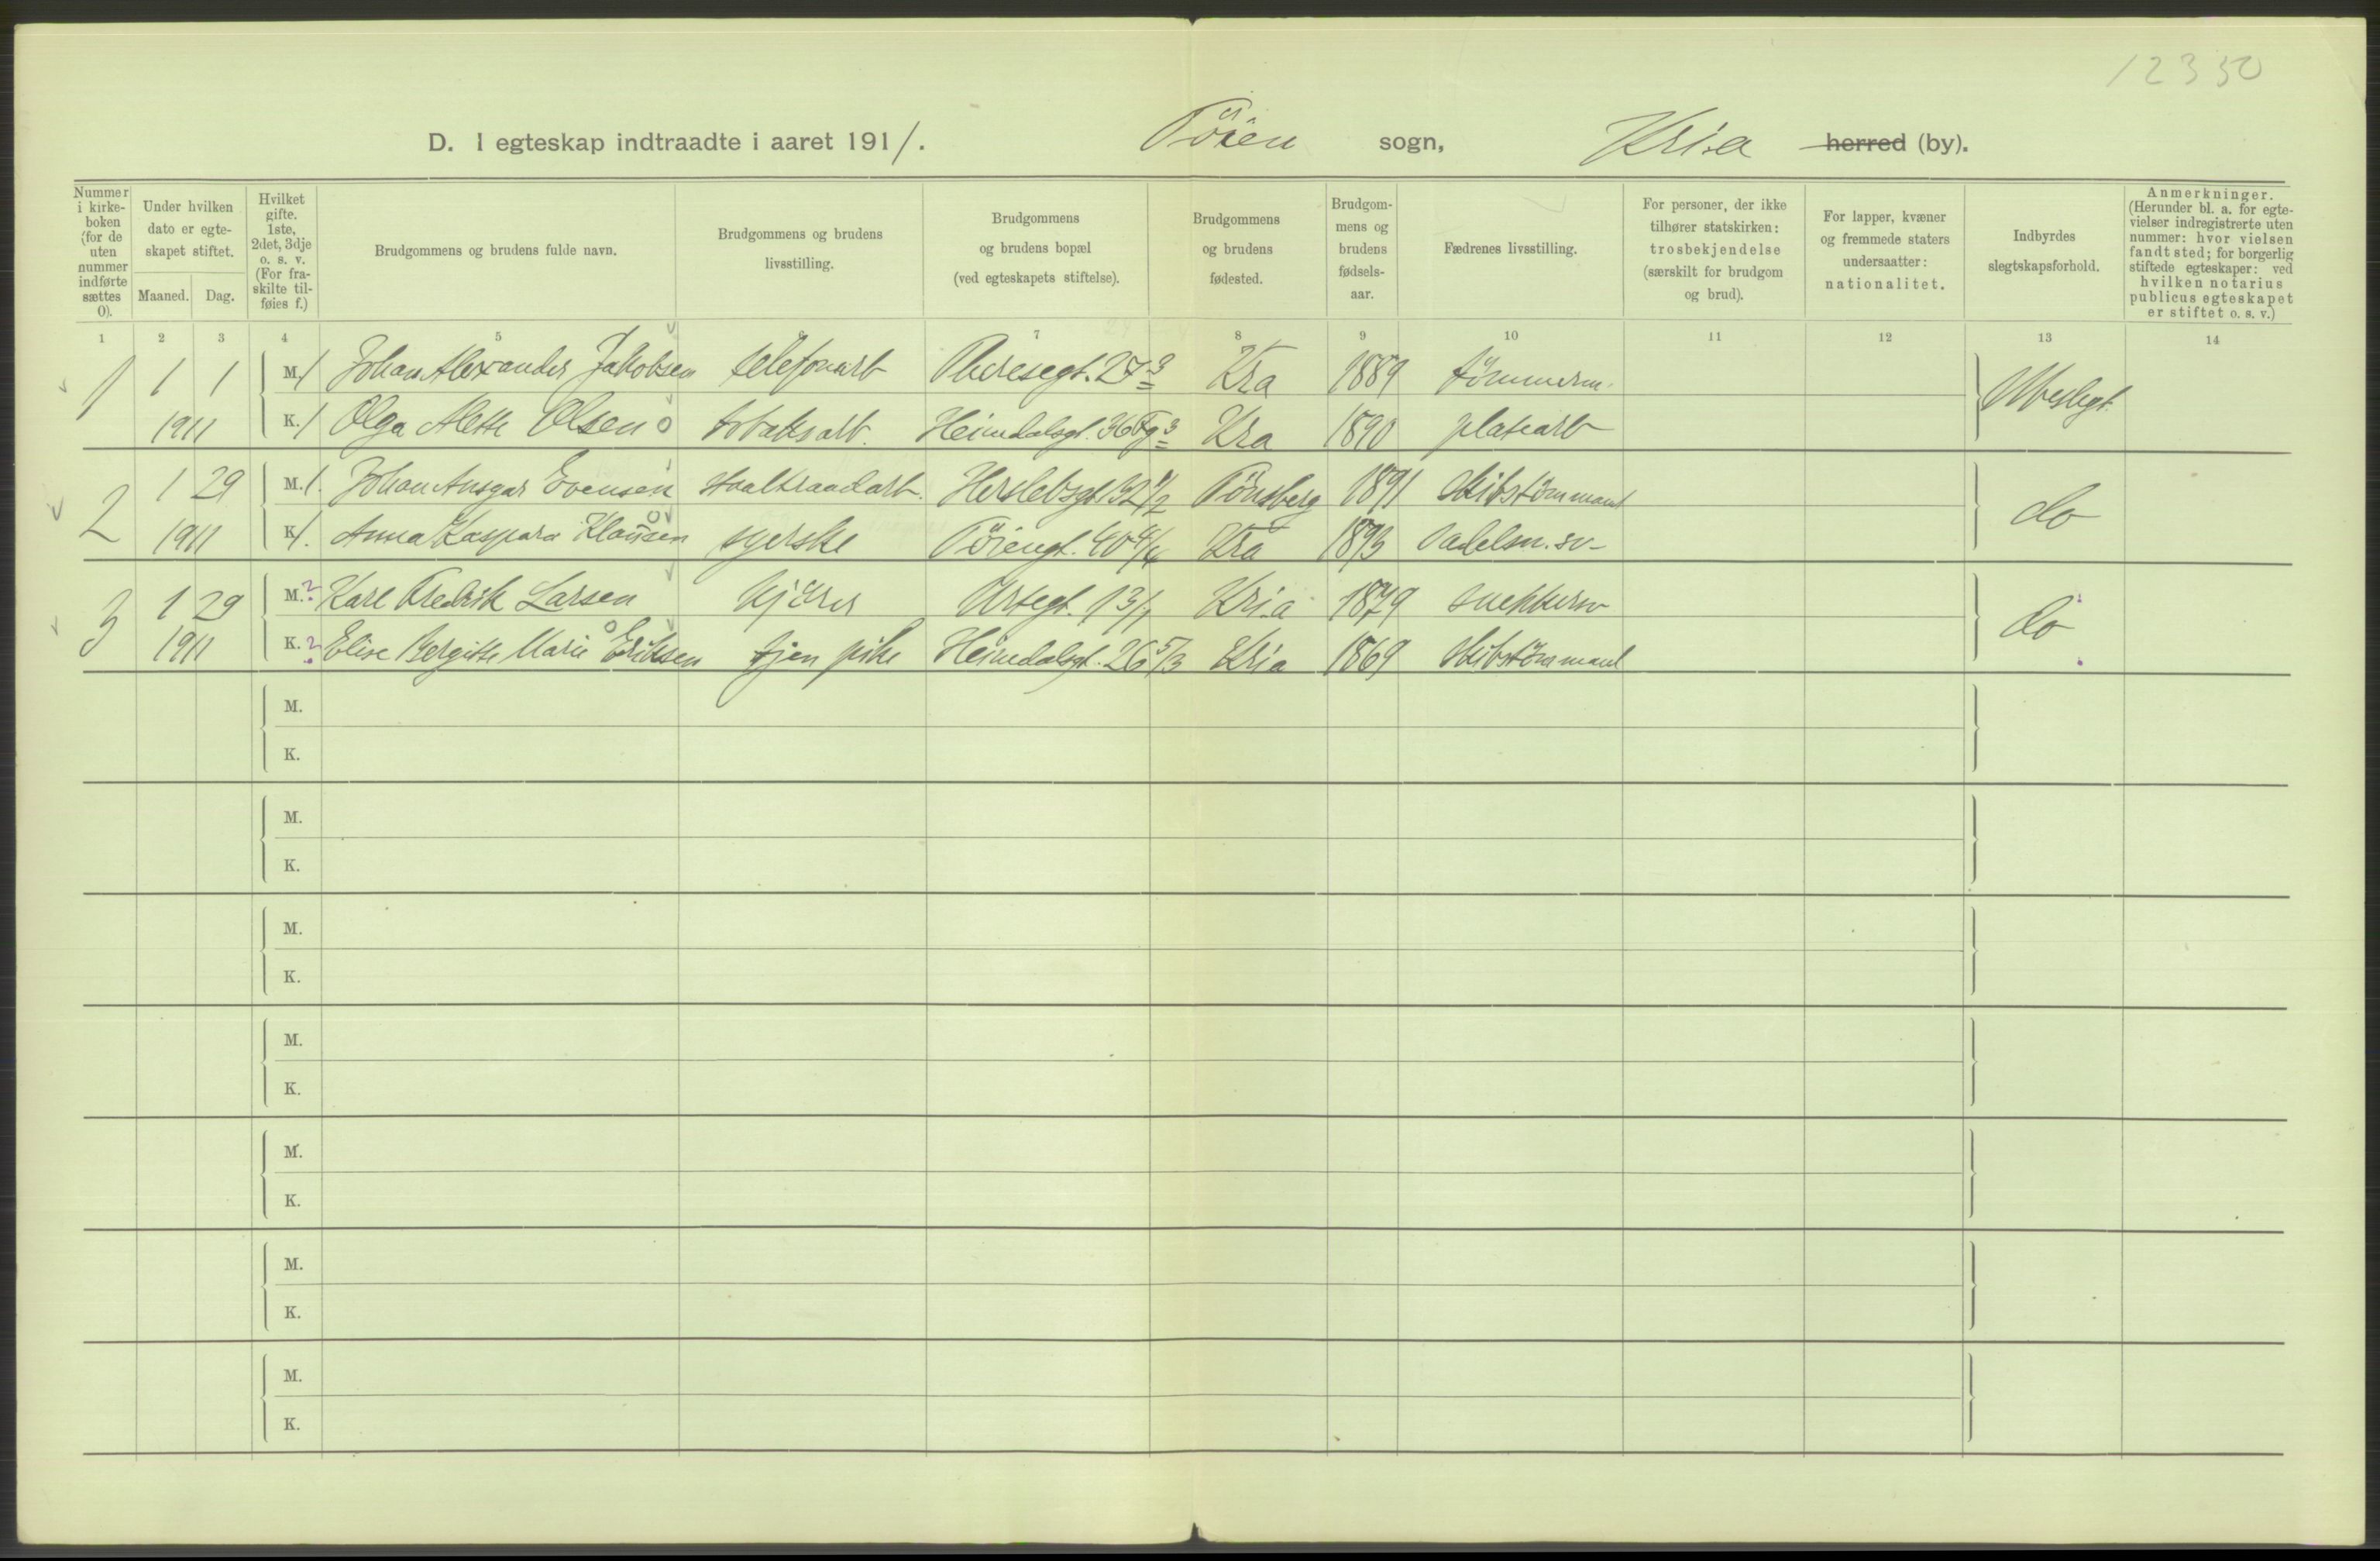 12350
D. I egteskap indtraadte i aaret 1911. Töien sogn, Kria herred (by).
Nummer i kirke-boken (for de uten nummer indførte sættes 0).
Under hvilken dato er egte-skapet stiftet. Maaned. Dag.
Hvilket gifte. 1ste, 2det, 3dje o. s. v. (For fra-skilte til-føies f.)
Brudgommens og brudens fulde navn.
Brudgommens og brudens livsstilling.
Brudgommens og brudens bopæl (ved egteskapets stiftelse).
Brudgommens og brudens fødested.
Brudgom-mens og brudens fødsels-aar.
Fædrenes livsstilling.
For personer, der ikke tilhører statskirken: trosbekjendelse (særskilt for brudgom og brud).
For lapper, kvæner og fremmede staters undersaatter: nationalitet.
Indbyrdes slegtskapsforhold.
Anmerkninger. (Herunder bl. a. for egte-vielser indregistrerte uten nummer: hvor vielsen fandt sted; for borgerlig stiftede egteskaper: ved hvilken notarius publicus egteskapet er stiftet o. s. v.)
1 2 3 4 5 6 7 8 9 10 11 12 13 14
1 1 1 M. 1 Johan Alexander Jakobsen telefonarb Theresegt. 27 3 Kra 1889 tömmerm. Ubeslegt.
1911 K. 1 Olga Alette Olsen tobaksarb. Heimdalsgt. 36 Fg 3 Kra 1890 platearb
2 1 29 M. 1. Johan Ansgar Evensen staaltraadarb. Herslebsgt 32 1/2 Tönsberg 1891 skibstömmand do
1911 K. 1. Anna Kaspara Klausen syerske Töiengt. 40 4/4 Kra 1893 sadelm. sv.
3 1 29 M. ? Karl Fredrik Larsen kjörer Urtegt. 13/1 Kri.a 1879 snekkersv do
1911 K. ? Elise Bergitte Marie Eriksen tjen pike Heimdalsgt. 26 5/3 Kria 1869 skibstömmand
M.
K.
M.
K.
M.
K.
M.
K.
M.
K.
M.
K.
M.
K.